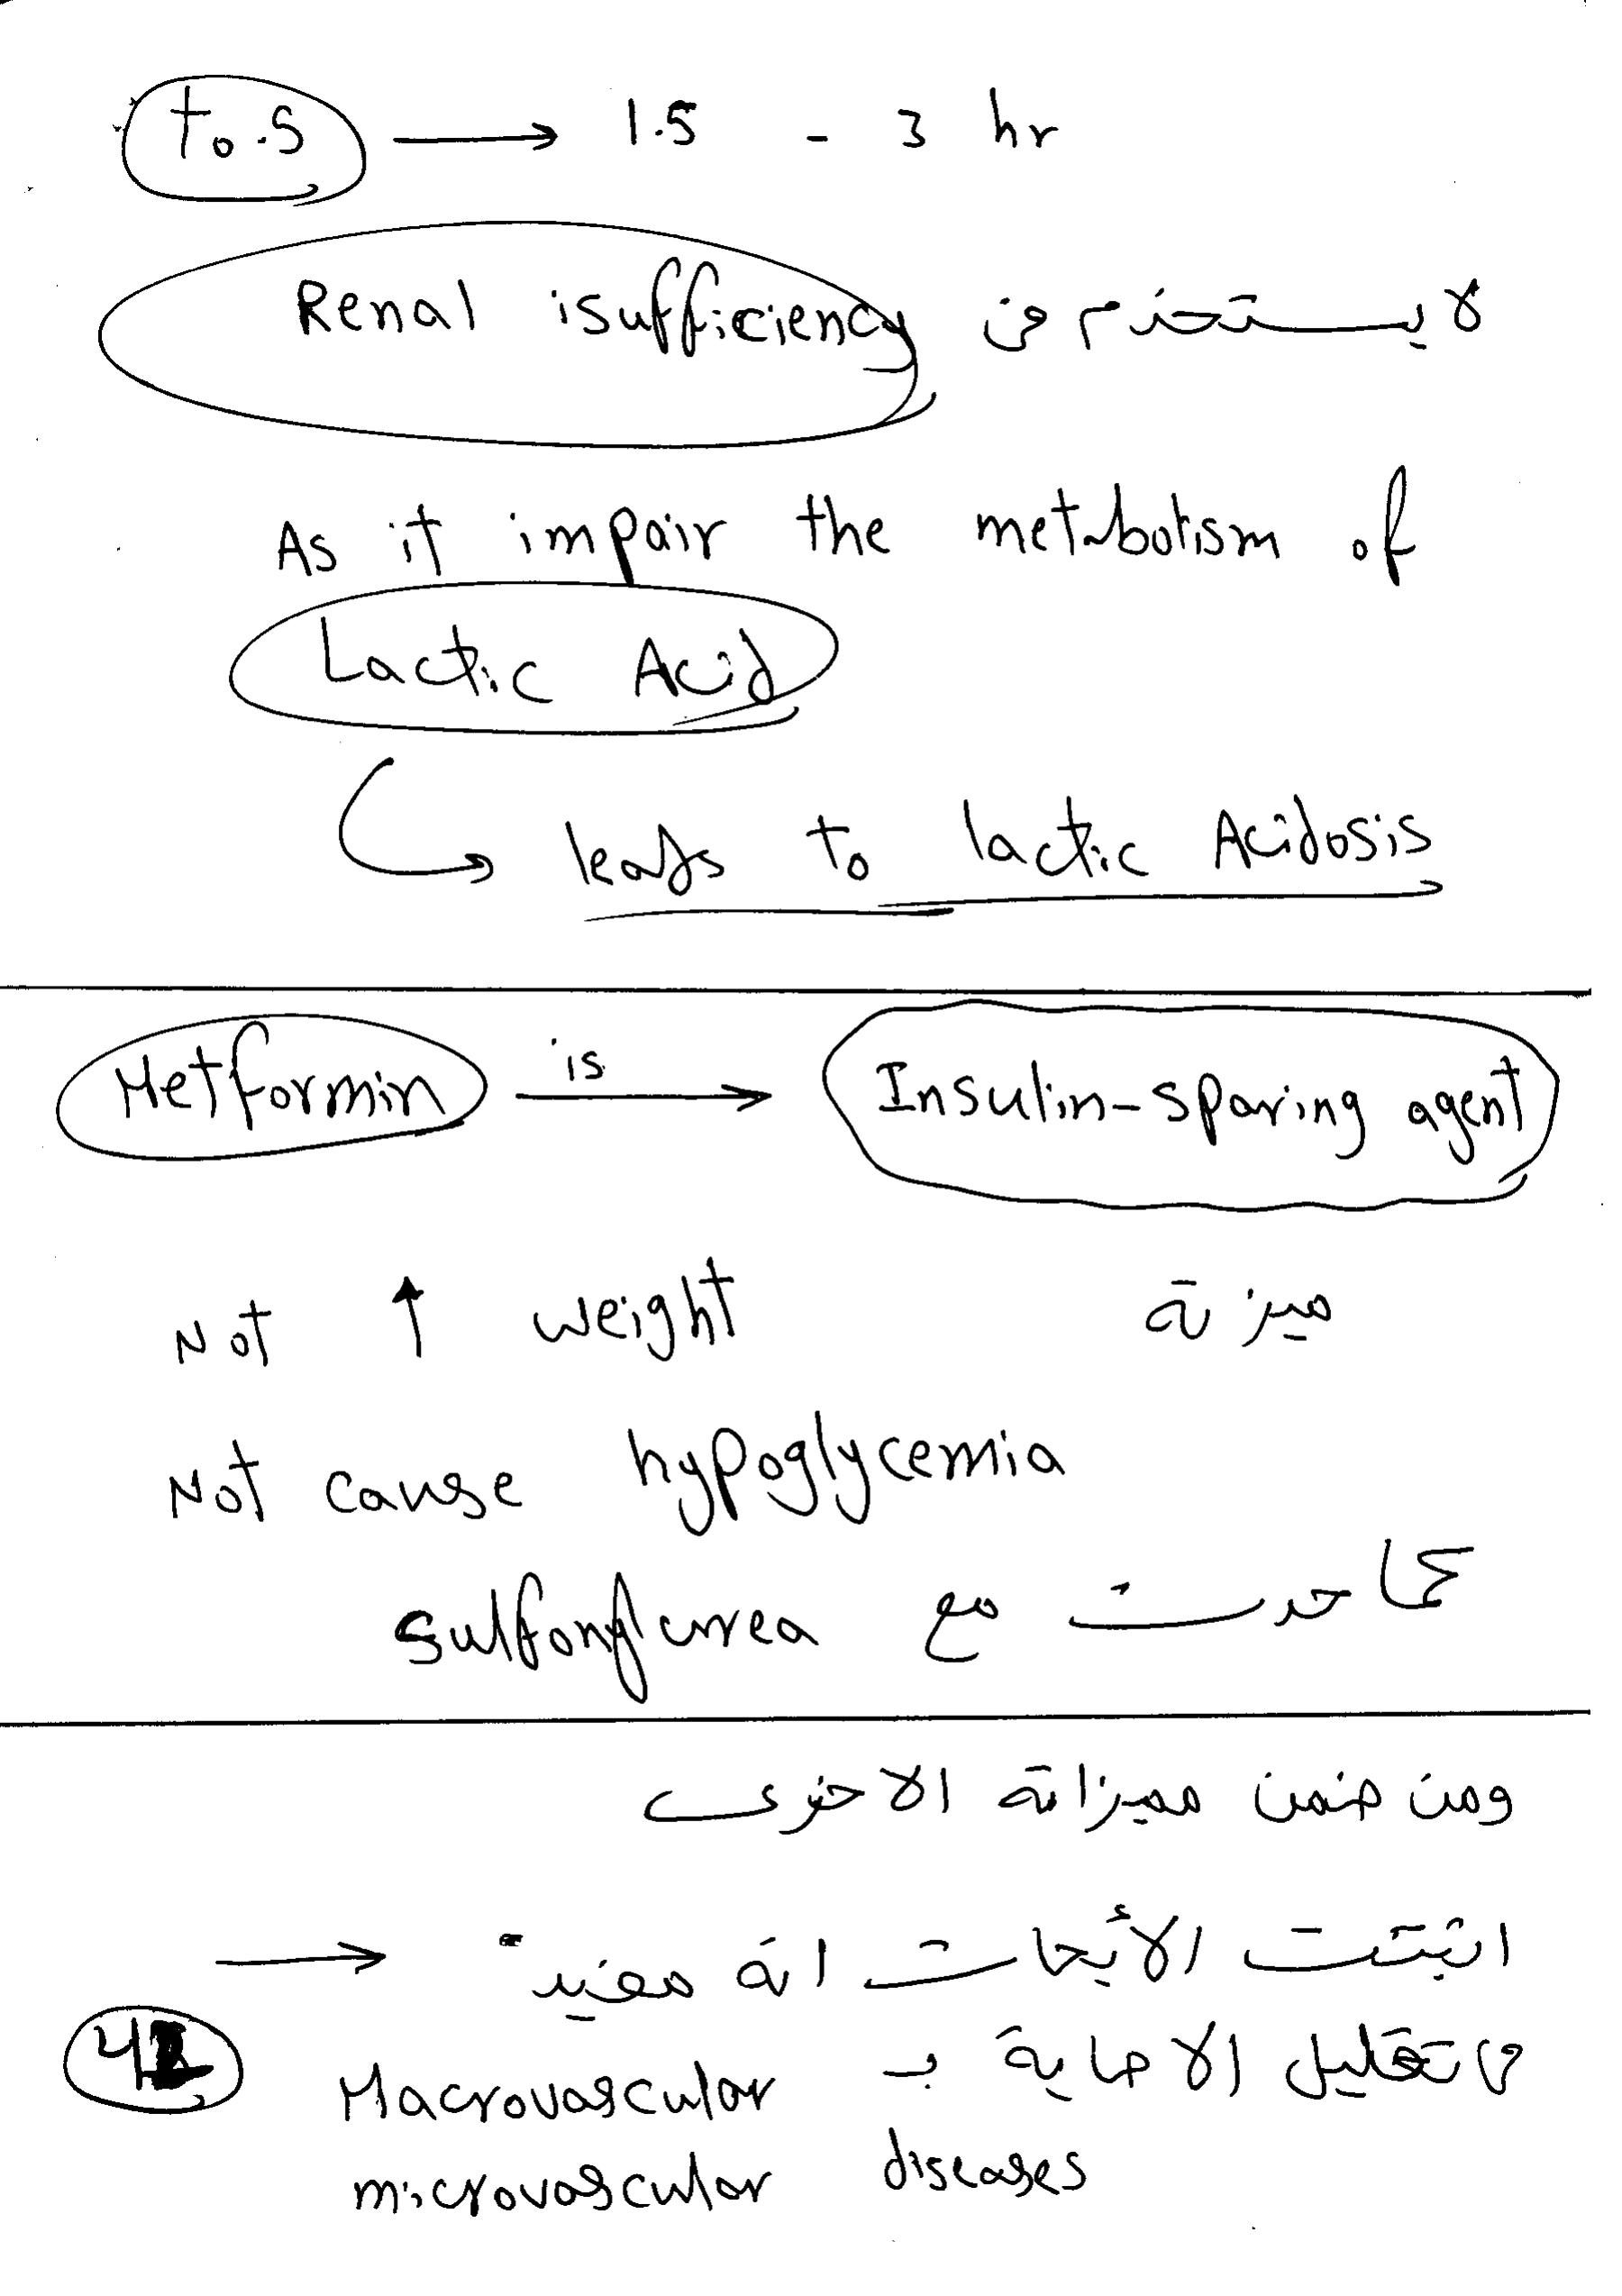 t0.5 → 1.5 - 3 hr
لا يستخدم فى Renal isufficiency
As it impair the metabolism of
Lactic Acid
leads to lactic Acidosis
Metformin is → Insulin-sparing agent
Not ↑ weight ميزته
Not cause hypoglycemia
كما حدث مع sulfonylurea
ومن ضمن مميزاته الاخرى
اثبتت الأبحاث انه مفيد →
فى تقليل الاصابة بـ Macrovascular
microvascular diseases